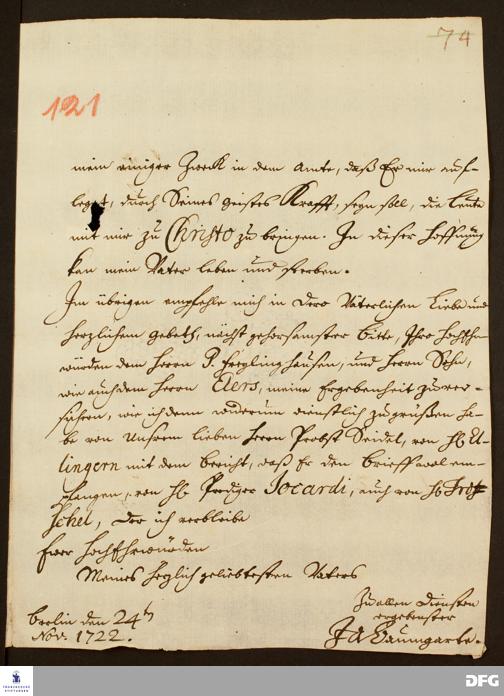 74
121
mein einiger Zweck in dem Amte, daß Er mir auf-
leget, durch Seines Geistes Krafft, seyn soll, die Leute
mit mir zu Christo zu bringen. In dieser Hoffnung
kan mein Vater leben und sterben.
Im übrigen empfehle mich in Dero Väterlichen Liebe und
herzlichem Gebeth, nächst gehorsamster Bitte, Ihro HochEhr
würden dem Herrn P. Freylinghausen, und Herrn Sohn,
wie auch dem Herrn Elers, meine Ergebenheit zu ver-
sichern, wie ich denn wiederum dienstlich zu grüßen ha-
be von Unserm lieben Herrn Probst Seidel, von H.
lingern mit dem Bericht, daß Er den Brieff wol em-
pfangen, von H. Prediger Jocardi, auch von H.
schel, der ich verbleibe
Ewer HochEhrwürden
Meines herzlich geliebtesten Vaters
Berlin den 24ten
Nov. 1722.
Zu allen Diensten
ergebenster
J A Baumgarte.
FRANCKESCHE
STIFTUNGEN
DFG